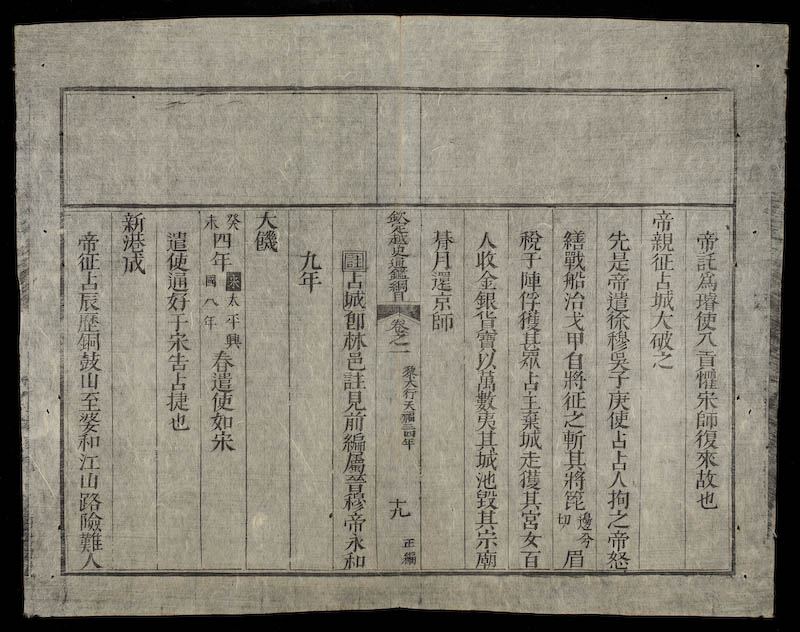 帝託爲璿使入貢懼宋師復來故也
帝親征占城大破之
先是帝遣徐穆吳子庚使占占人拘之帝怒
繕戰船治戈甲自將征之斬其將箆邊兮切眉
稅于陣俘獲甚眾占主棄城走獲其宮女百
人收金銀貨寶以萬數夷其城池毀其宗廟
朞月還京師
欽定越史通鑑綱目 卷之一 黎大行天福三四年 十九 正編
註占城卽林邑註見前編屬晉穆帝永和
九年
大饑
癸未四年宋太平興國八年春遣使如宋
遣使通好于宋吿占捷也
新港成
帝征占辰歷銅鼓山至婆和江山路險難人